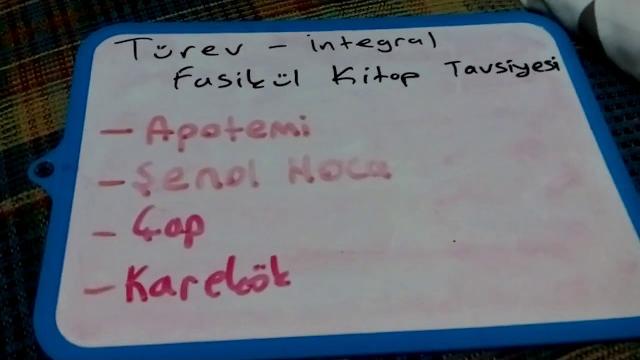 Türev - integral
Fasikül Kitap Tavsiyesi
- Apotemi
- Şenol Hoca
- Çap
- Karekök